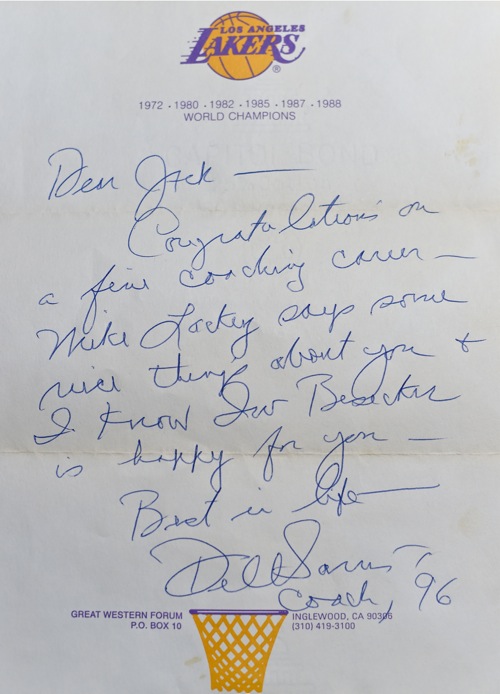 LOS ANGELES
LAKERS ®
1972 • 1980 • 1982 • 1985 • 1987 • 1988
WORLD CHAMPIONS
Dear Jack —
Congratulations on
a fine coaching career —
Mike Lackey says some
nice things about you +
I know Irv Besecker
is happy for you —
Best in life —
Del Harris
Coach, 96
GREAT WESTERN FORUM
P.O. BOX 10
INGLEWOOD, CA 90306
(310) 419-3100